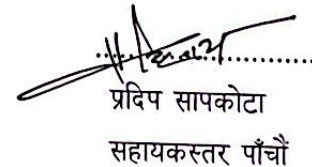 प्रदिप सापकोटा
सहायकस्तर पाँचौं